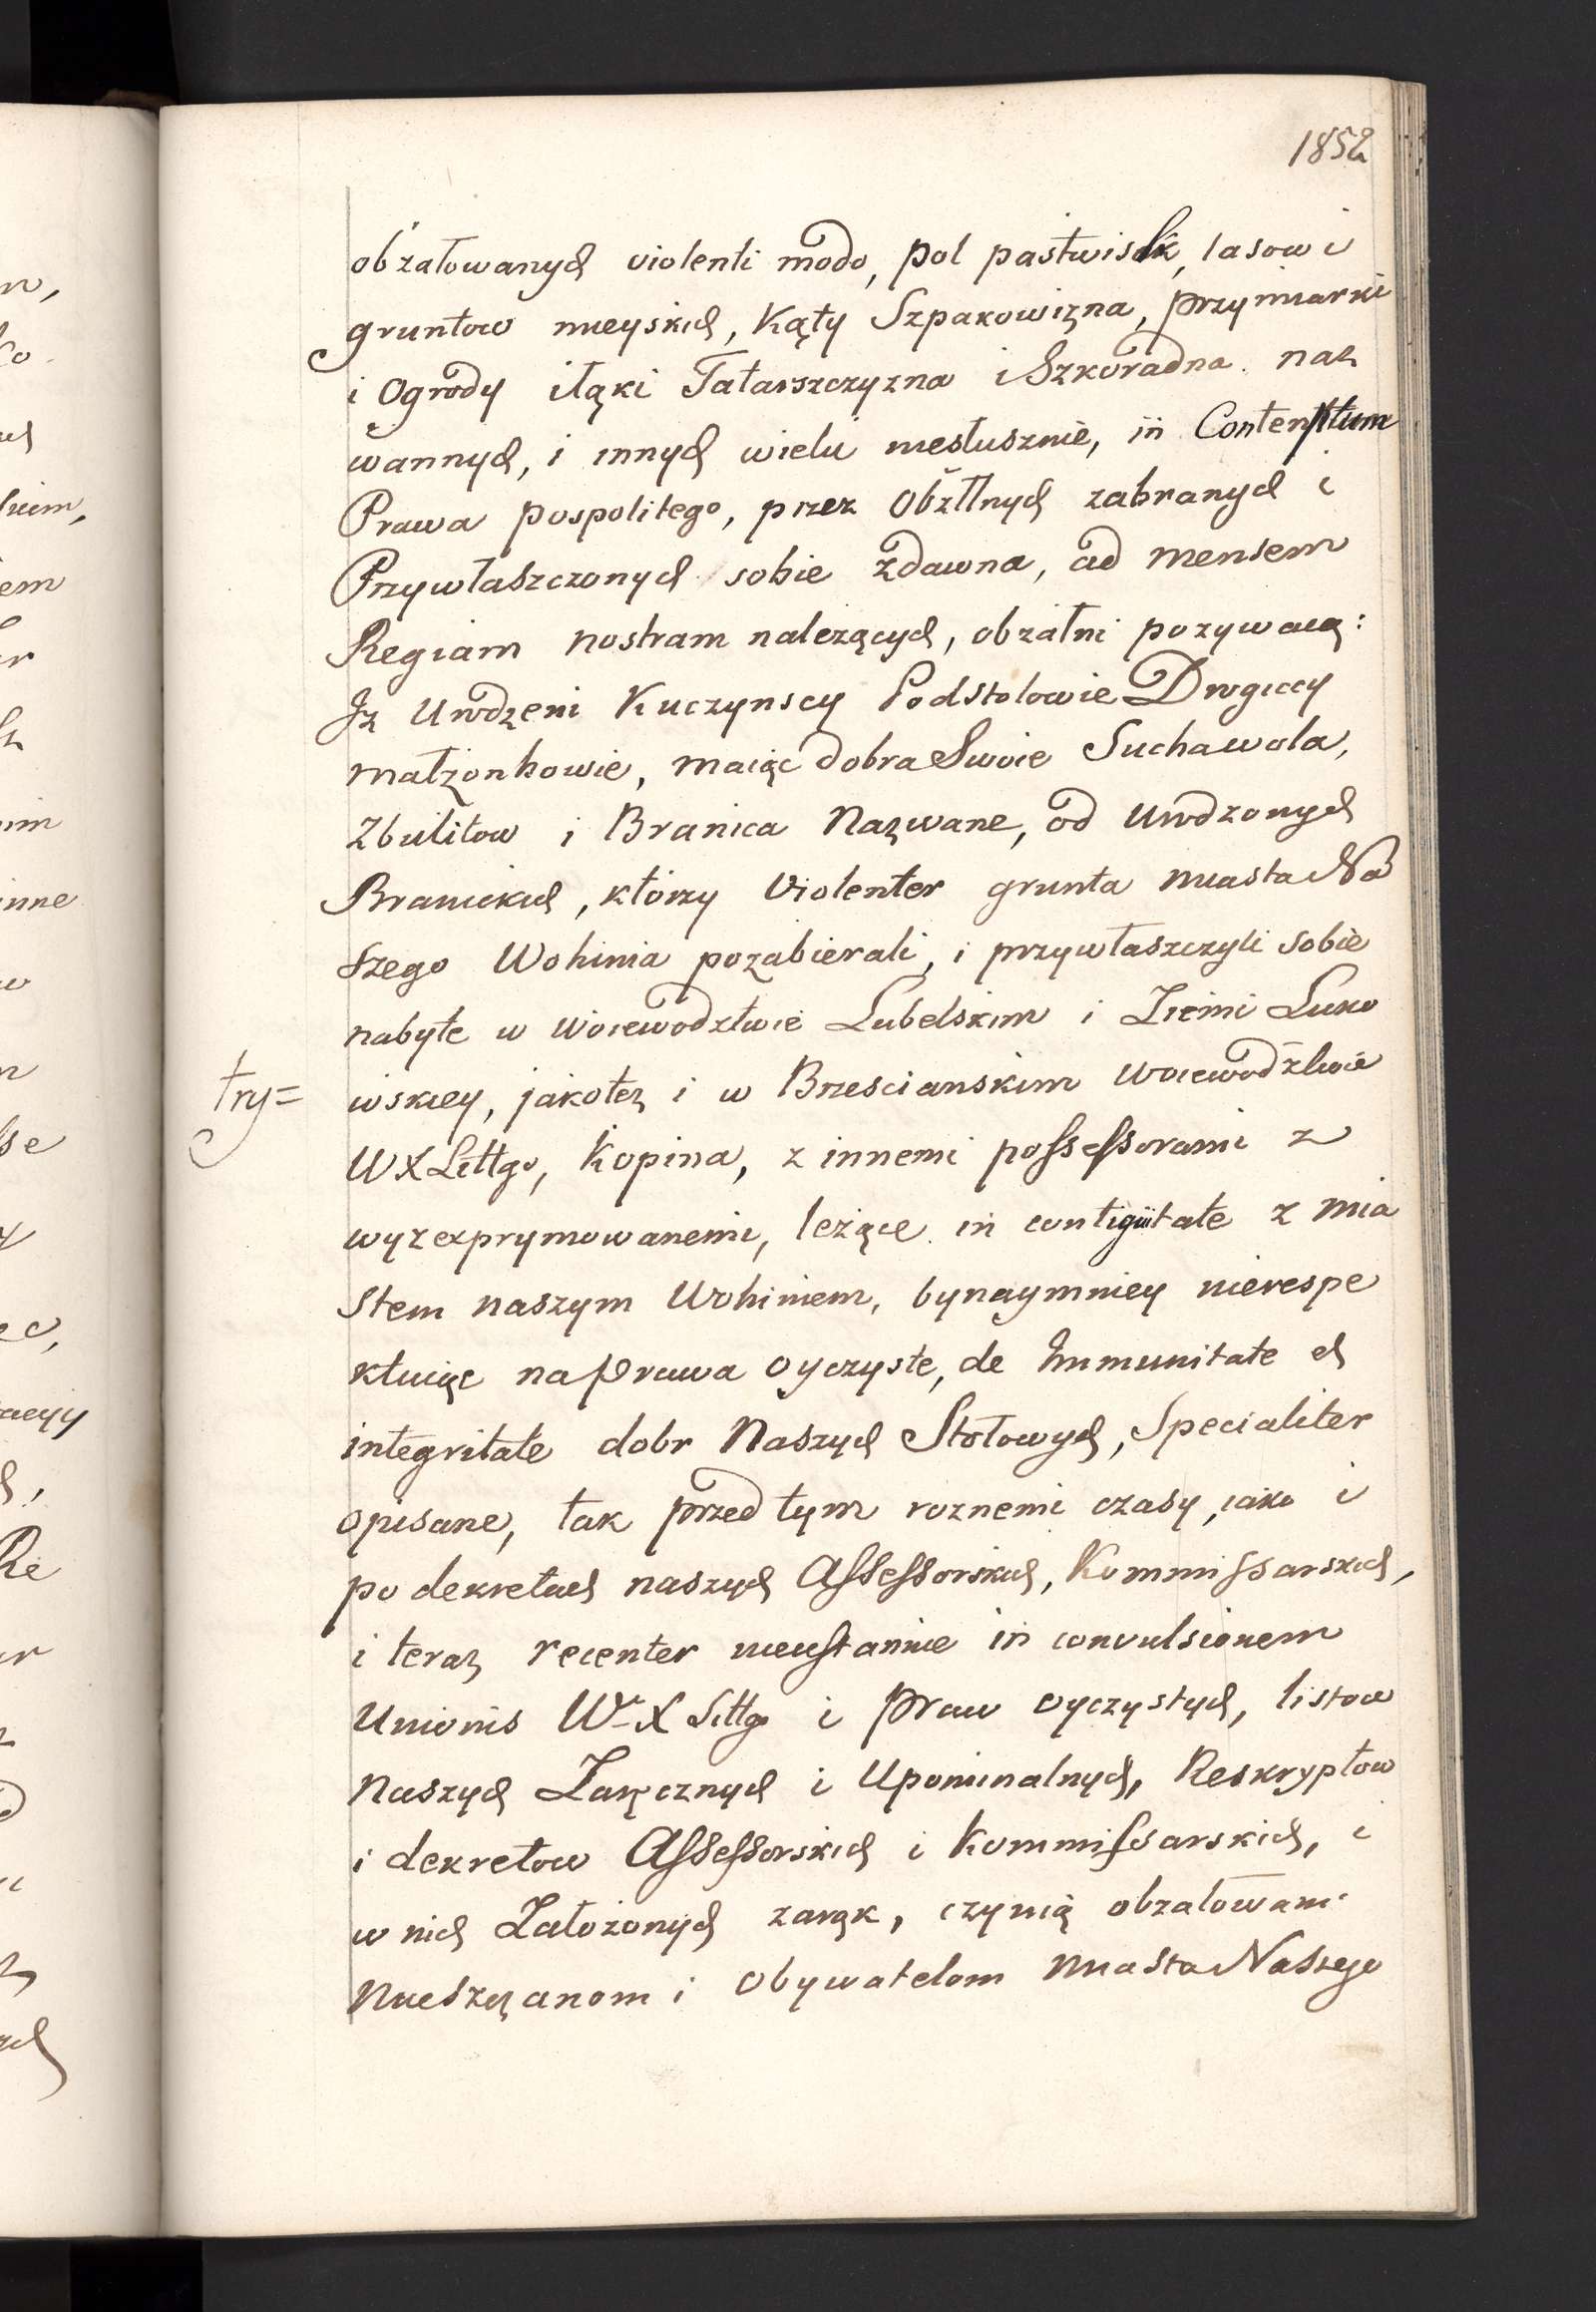 1852
obżałowanych violenti modo, pol pastwisk, lasow i
gruntow mieyskich, Kąty Szpakowizna, przymiarki
i Ogrody iłąki Tatarszczyzna i Szkoradna naz
wannych, i innych wielu niesłusznie, in Contemptum
Prawa pospolitego, przez Obżłłnych zabranych i
Przywłaszczonych sobie zdawna, ad mensem
Regiam nostram należących, obżałni pozywaią:
Iz Urodzeni Kuczynscy Podstolowie Drogiccy
małżonkowie, maiąc dobra Swoie Suchawola,
Zbulitow i Branica Nazwane, od Urodzonych
Branickich, którzy Violenter grunta miasta Na
szego Wohinia pozabierali, i przywłaszczyli sobie
nabyte w Woiewodztwie Lubelskim i Ziemi Luko
try=
wskiey, jakotez i w Brzescianskim Woiewodztwie
WXLittgo, Kopina, z innemi possessorami z
wyzexprymowanemi, leżące in contiguitate z mia
stem naszym Wohiniem, bynaymniey nierespe
ktuiąc na Prawa oyczyste, de Immunitate et
integritate dobr Naszych Stołowych, Specialiter
opisane, tak przed tym roznemi czasy, iako i
po dekretach naszych Assessorskich, Kommissarskich,
i teraz recenter nieustannie in convulsionem
Unionis W X Littgo i Praw oyczystych, listow
Naszych Zaręcznych i Upominalnych, Reskryptow
i dekretow Assessorskich i Kommissarskich, i
w nich Założonych zarąk, czynią obżałowani
Mieszczanom i Obywatelom Miasta Naszego